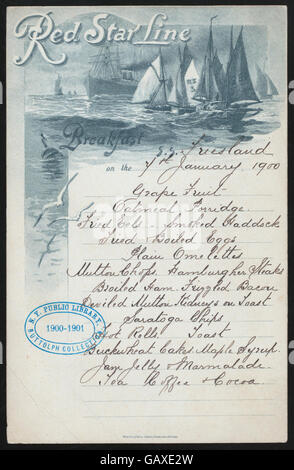 Red Star Line
Breakfast
S.S. Friesland
on the 7th January 1900
Grape Fruit
Oatmeal Porridge
Fried Eels Smoked Haddock
Fried Boiled Eggs
Plain Omelettes
Mutton Chops. Hamburgher Steaks
Broiled Ham. Frizzled Bacon
Deviled Mutton Kidneys on Toast
Saratoga Chips
Hot Rolls. Toast
Buckwheat Cakes Maple Syrup
Jam Jelly & Marmalade
Tea Coffee & Cocoa
N.Y. PUBLIC LIBRARY
1900-1901
BUTTOLPH COLLECTION
alamy
Image ID: GAXE2W
www.alamy.com